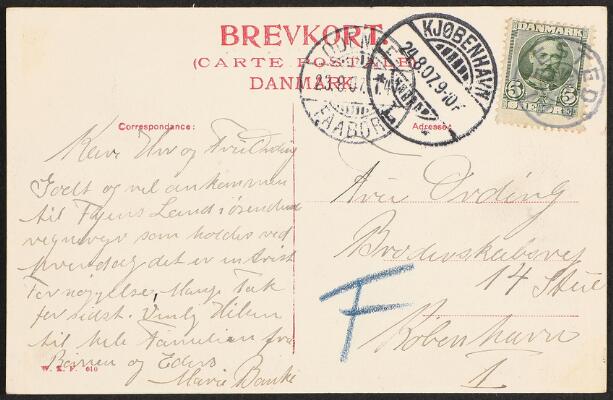 BREVKORT.
(CARTE POSTALE)
DANMARK.
ODENSE
23.8.07.
FAABORG
KJØBENHAVN
24.8.07.9-10F
1
DANMARK
5 5
ØRE
Correspondence:
Adresse:
Kære Hr og Fru Ørding
Godt og vel ankommen
til Fyens Land i øsende
regnvejr som holdes ved
hverdag det er en trist
Fornøjelse, Mange Tak
for sidst. Venlig Hilsen
til hele Familien fra
Børnen og Eders
Marie Banke
Ørding
Broderskabsvej
14 Stue
København
1
F
W. K. F. 610